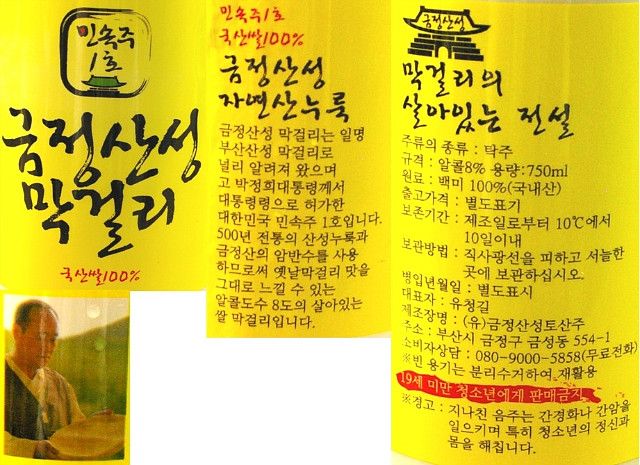 민속주
1호
금정산성
막걸리
국산쌀100%
민속주1호
국산쌀100%
금정산성
자연산누룩
금정산성 막걸리는 일명
부산산성 막걸리로
널리 알려져 왔으며
고 박정희대통령께서
대통령령으로 허가한
대한민국 민속주 1호입니다.
500년 전통의 산성누룩과
금정산의 암반수를 사용
하므로써 옛날막걸리 맛을
그대로 느낄 수 있는
알콜도수 8도의 살아있는
쌀 막걸리입니다.
금정산성
막걸리의
살아있는 전설
주류의 종류 : 탁주
규격 : 알콜8% 용량:750ml
원료 : 백미 100%(국내산)
출고가격 : 별도표기
보존기간 : 제조일로부터 10℃에서
10일이내
보관방법 : 직사광선을 피하고 서늘한
곳에 보관하십시오.
병입년월일 : 별도표시
대표자 : 유청길
제조장명 : (유)금정산성토산주
주소 : 부산시 금정구 금성동 554-1
소비자상담 : 080-9000-5858(무료전화)
※빈 용기는 분리수거하여 재활용
19세 미만 청소년에게 판매금지
※경고 : 지나친 음주는 간경화나 간암을
일으키며 특히 청소년의 정신과
몸을 해칩니다.